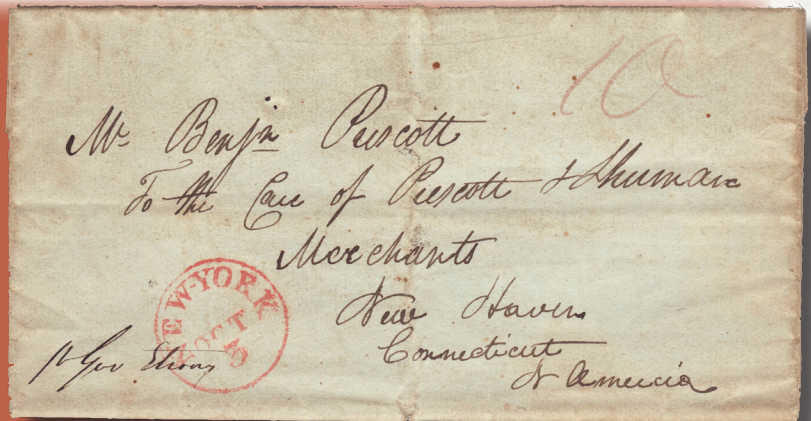 10
Mr Benjn Prescott
To the Care of Prescott & Shuman
Merchants
New Haven
Connecticut
N America
NEW-YORK
OCT
pr Geo Strong